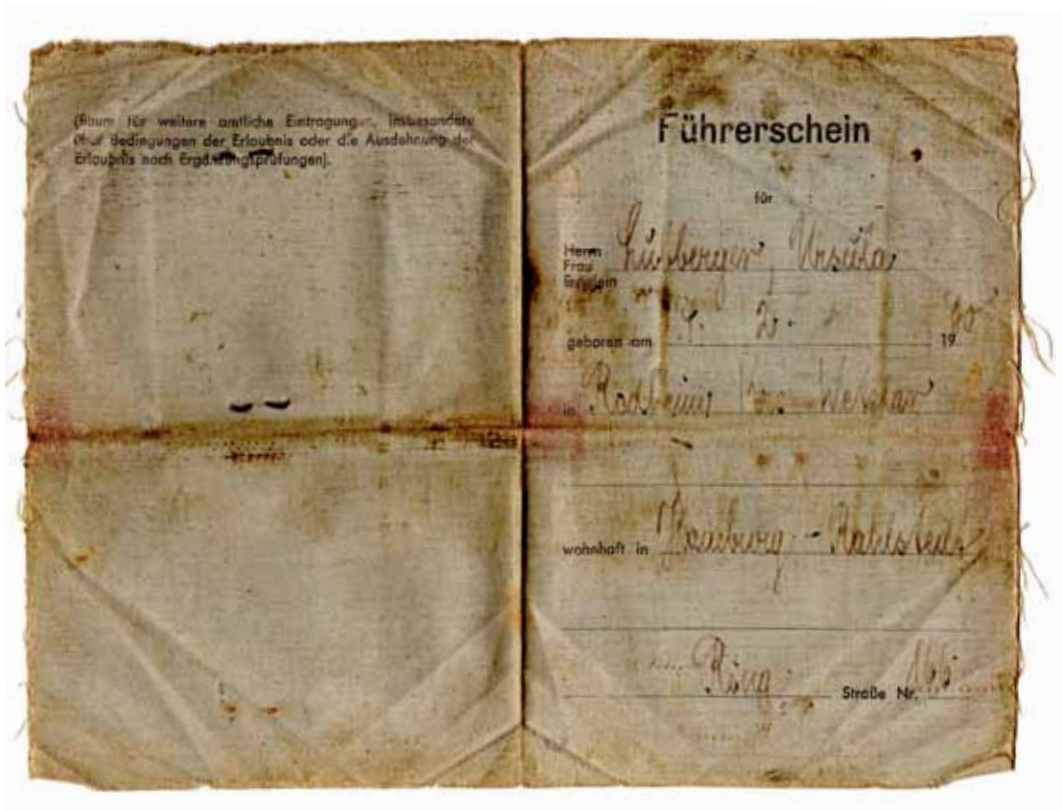 (Raum für weitere amtliche Eintragungen, insbesondere
über Bedingungen der Erlaubnis oder die Ausdehnung der
Erlaubnis nach Ergänzungsprüfungen).
Führerschein
für
Herrn
Frau
Fräulein
Ursula
geboren am 2. 19
in
wohnhaft in Hamburg - Rahlstedt
Ring Straße Nr. 166